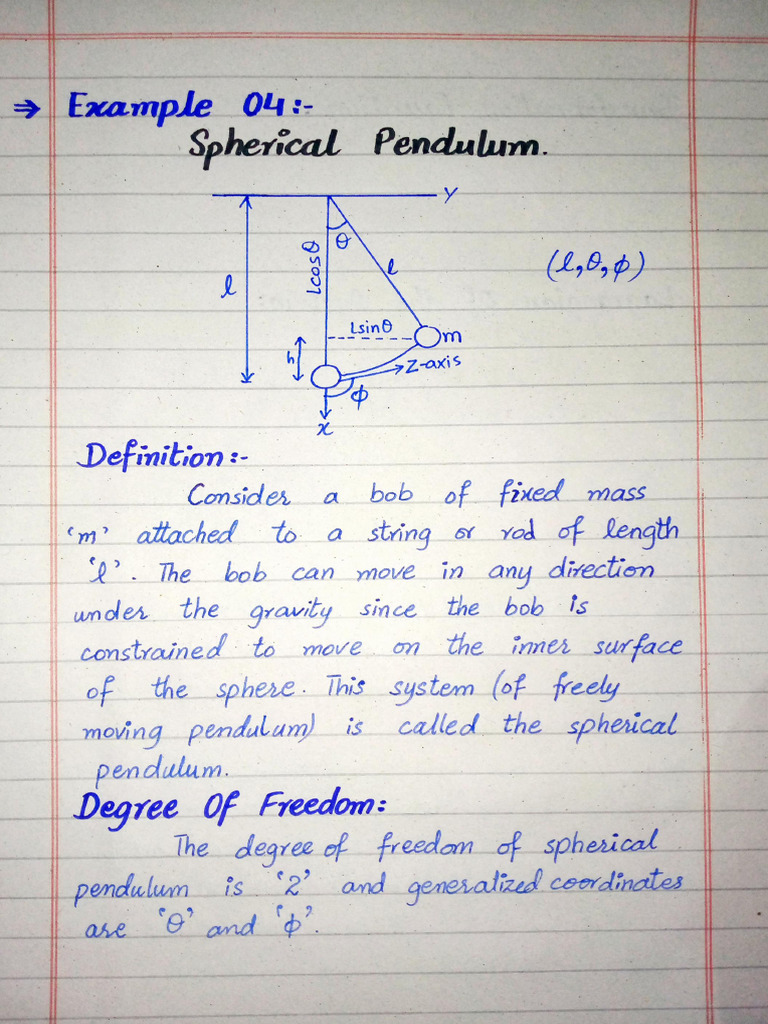 ⇒ Example 04:-
Spherical Pendulum.
Y
θ
lcosθ
l
l
(l,θ,φ)
lsinθ
m
h
Z-axis
φ
x
Definition:-
Consider a bob of fixed mass
'm' attached to a string or rod of length
'l'. The bob can move in any direction
under the gravity since the bob is
constrained to move on the inner surface
of the sphere. This system (of freely
moving pendulum) is called the spherical
pendulum.
Degree Of Freedom:
The degree of freedom of spherical
pendulum is '2' and generalized coordinates
are 'θ' and 'φ'.